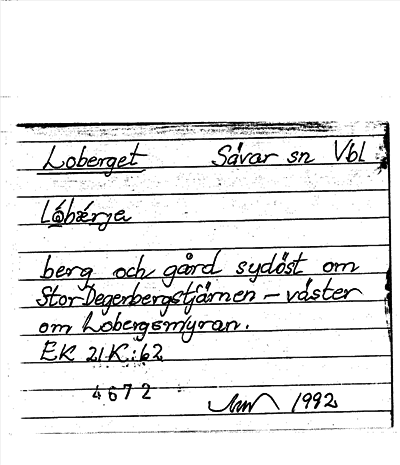 Loberget Sävar sn Vbl
Lóbærje
berg och gård sydöst om
Stor Degerbergstjärnen – väster
om Lobergsmyran.
EK 21K:62
4672
1992